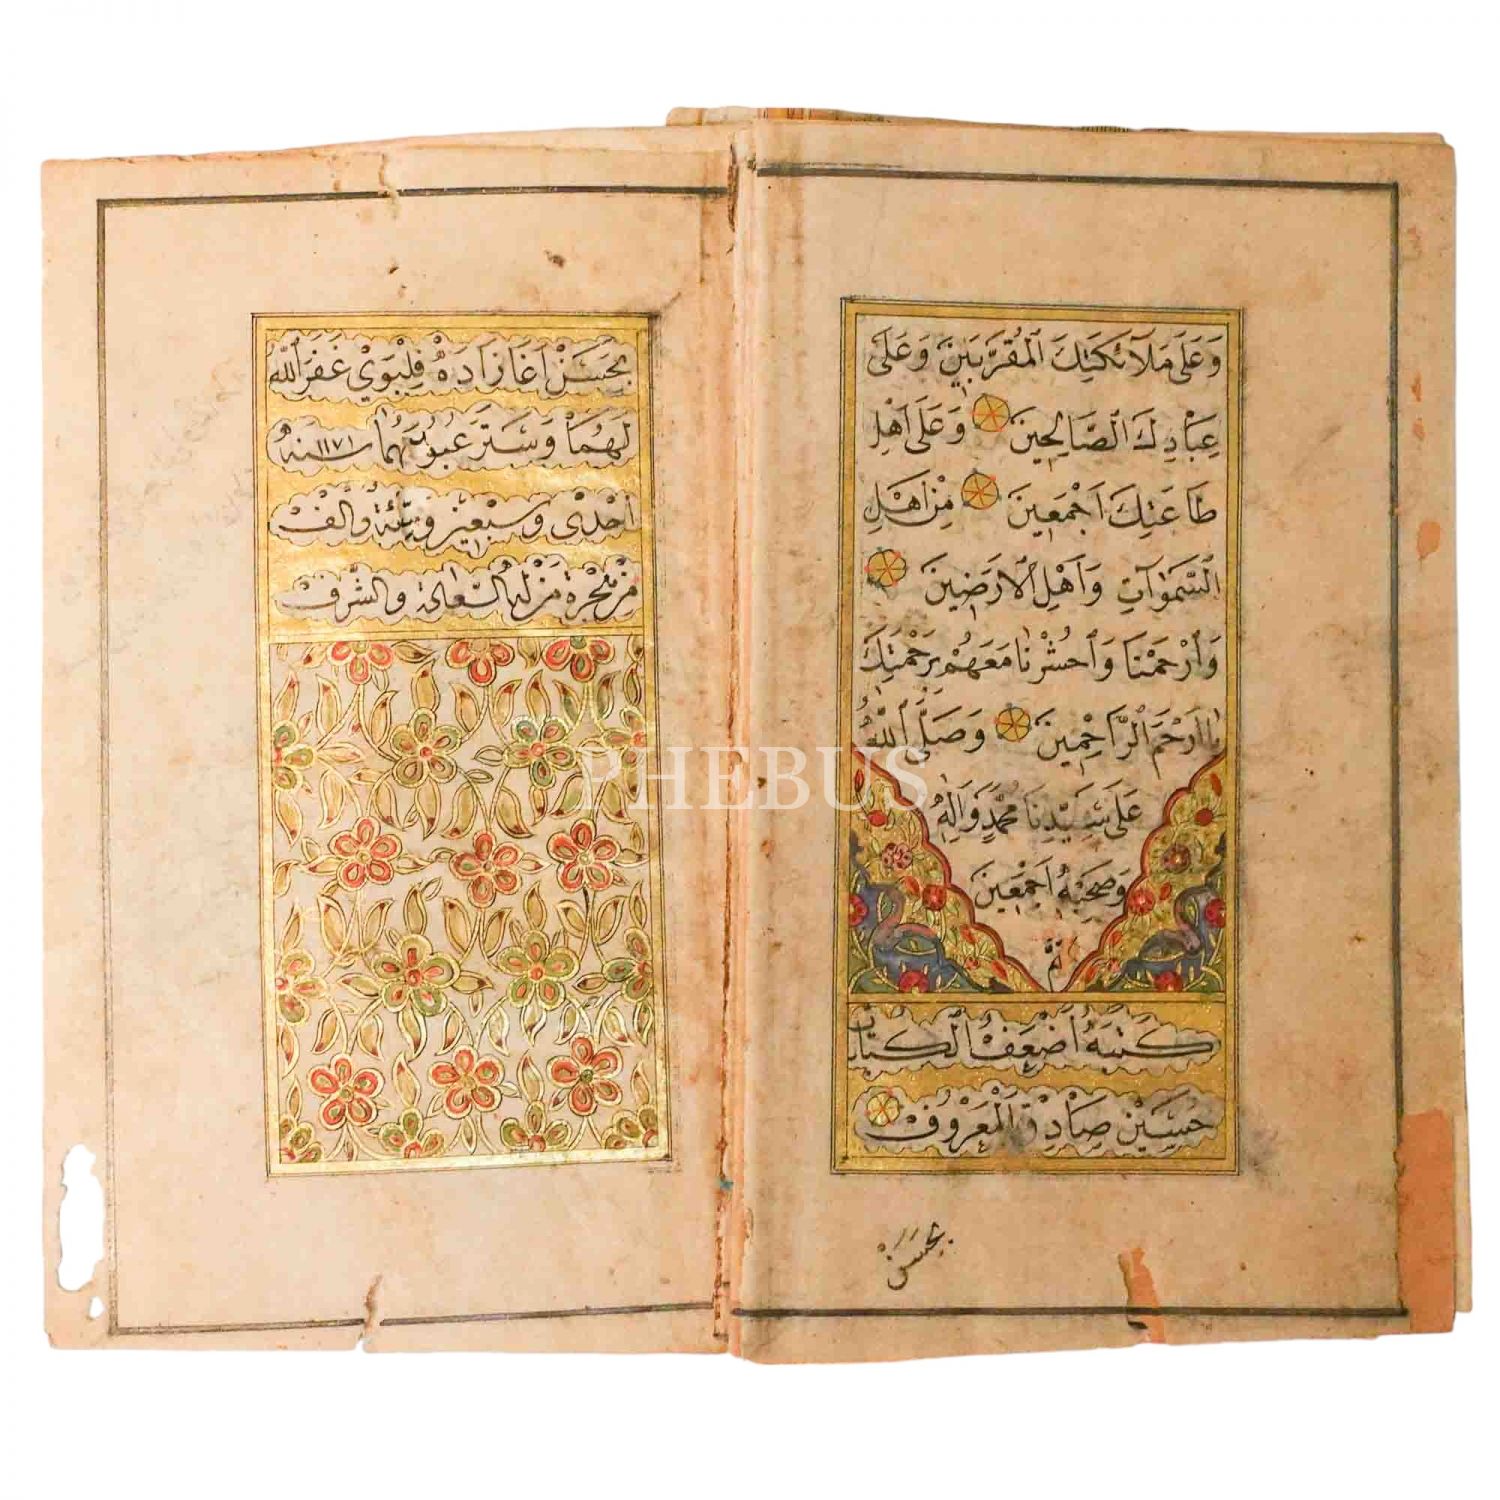 وَعَلَى مَلَآئِكَتِكَ الْمُقَرَّبِينَ وَعَلَى
عِبَادِكَ الصَّالِحِينَ وَعَلَى اَهْلِ
طَاعَتِكَ اَجْمَعِينَ مِنْ اَهْلِ
السَّمٰوَاتِ وَاَهْلِ الْاَرَضِينَ
وَارْحَمْنَا وَاحْشُرْنَا مَعَهُمْ بِرَحْمَتِكَ
يَا اَرْحَمَ الرَّاحِمِينَ وَصَلَّى اللّٰهُ
عَلَى سَيِّدِنَا مُحَمَّدٍ وَاٰلِهِ
وَصَحْبِهِ اَجْمَعِينَ
تَمَّ
كَتَبَهُ اَضْعَفُ الْكُتَّابِ
حُسَيْن صَادِق الْمَعْرُوفْ
بِحَسَنْ
بِحَسَنْ اَغَا زَادَهْ غَفَرَ اللّٰهُ
لَهُمَا وَسَتَرَ عُيُوبَهُمَا سنه ١١٧١
اِحْدٰى وَسَبْعِينَ وَمِئَةٍ وَاَلْفْ
مِنْ هِجْرَةِ مَنْ لَهُ السَّعَادَةُ وَالشَّرَفْ
PHEBUS